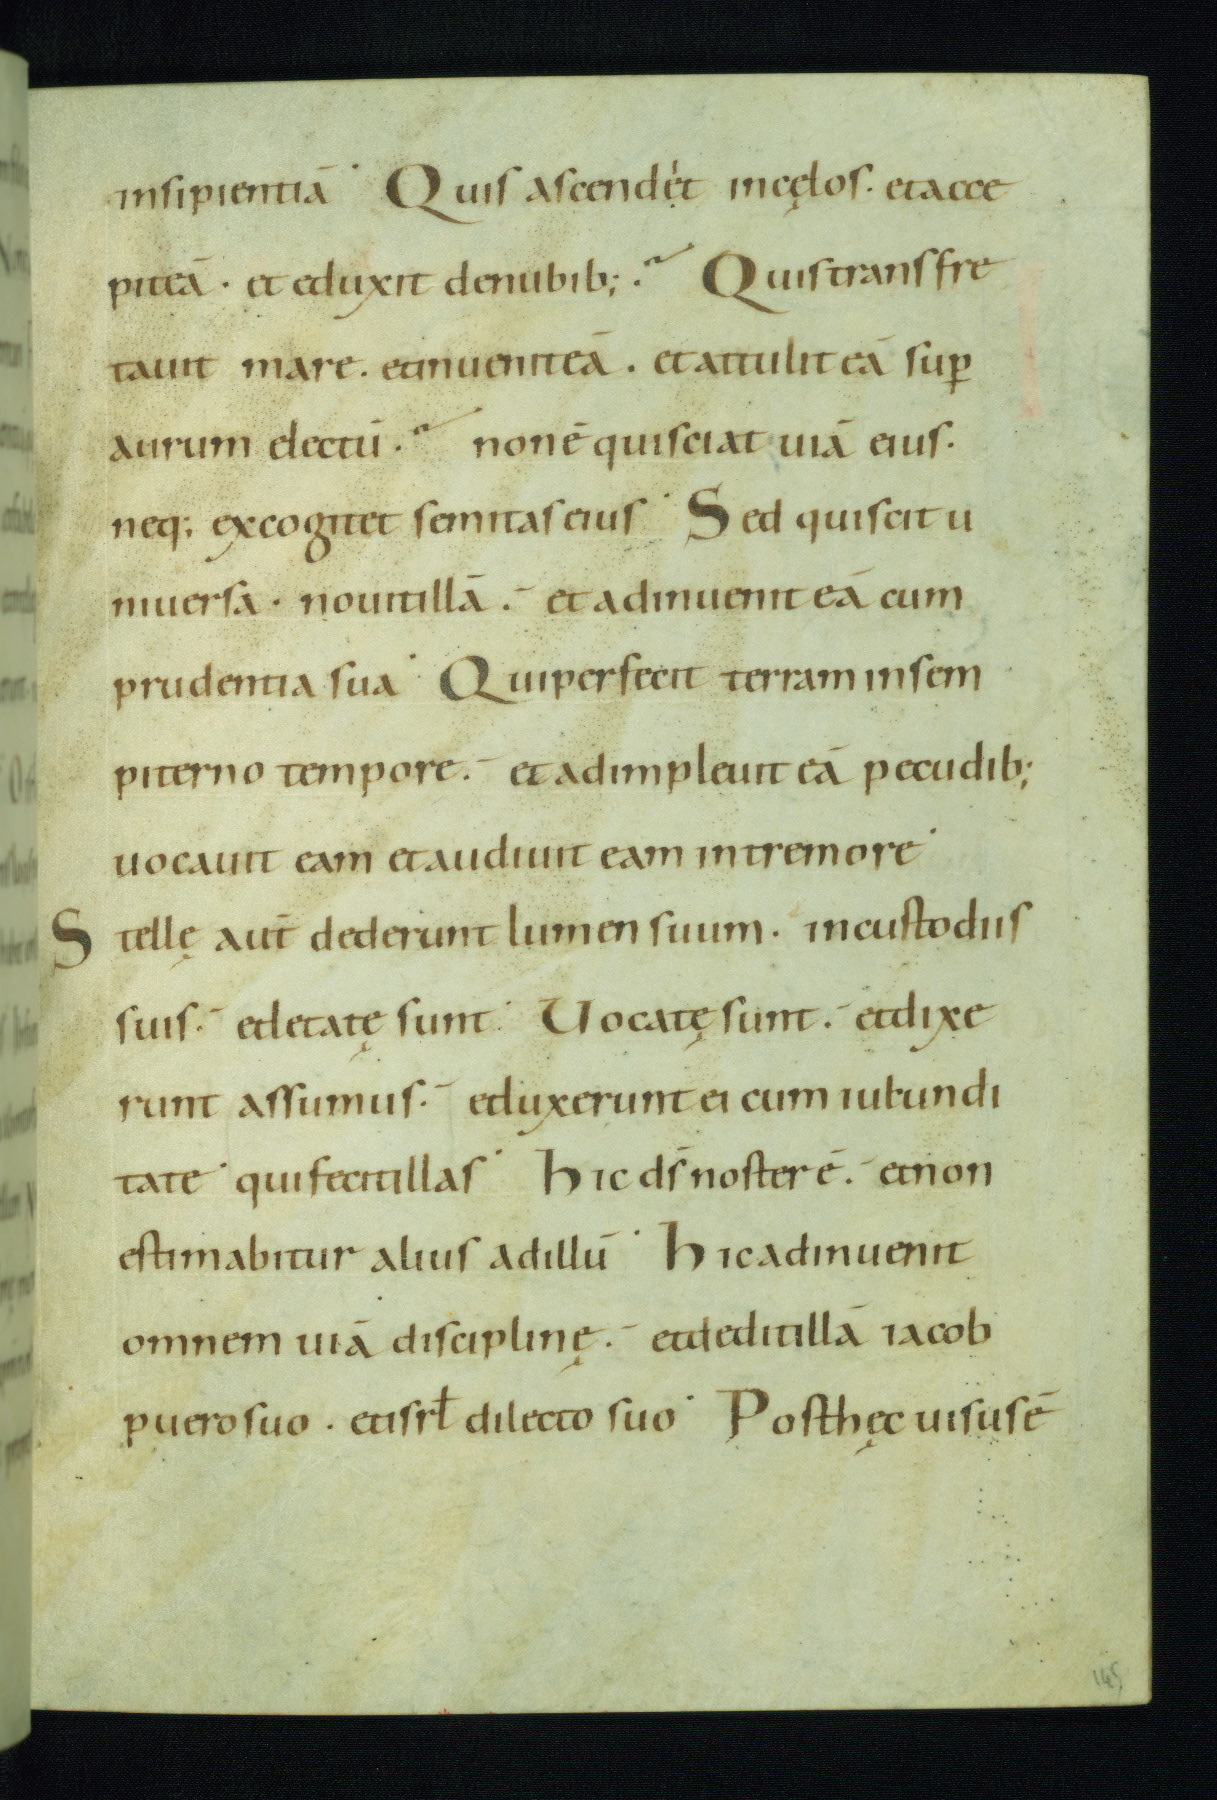 insipientiā· Quis ascendit incęlos. etacce
piteā. et eduxit denubib; . Quistransfre
tauit mare. etinueniteā. et attulit eā suꝑ
aurum electū. nonē quisciat uiā eius.
neq; excogitet semitas eius· Sed quiscit u
niuersa. nouitillā. et adinuenit eā cum
prudentia sua· Quiperfecit terram insem
piterno tempore. et adimpleuit eā pecudib;
uocauit eam et audiuit eam intremore·
Stellę aut̄ dederunt lumen suum. incustodiis
suis. etletatę sunt· Uocatę sunt. etdixe
runt assumus. etluxerunt ei cum iucundi
tate· quifecitillas· hic d̄s noster ē. etnon
estimabitur alius adillū· hic adinuenit
omnem uiā disciplinę. etdeditillā iacob
puerosuo. etisrł dilecto suo· Posthęc uisusē
145